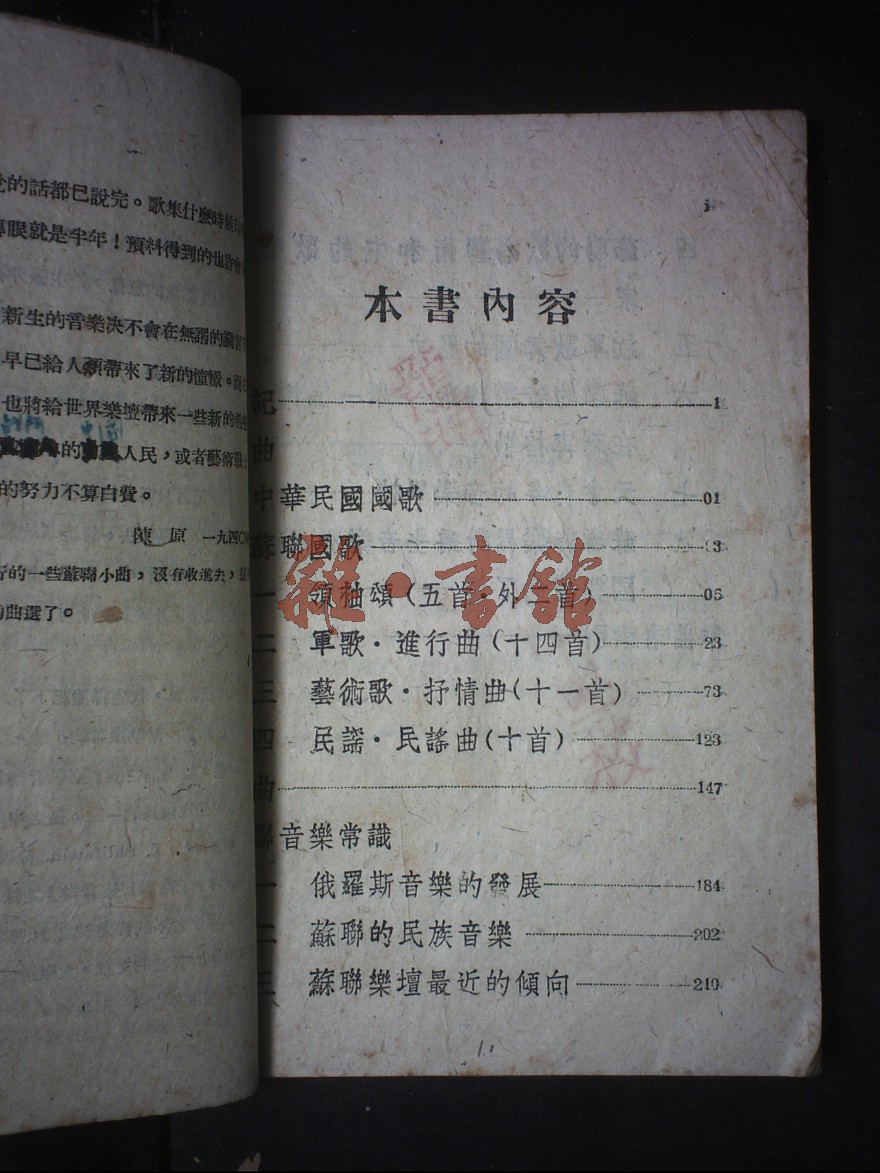 的話都已說完。歌集什麼時候
眼就是半年！預料得到的也許會
新生的音樂决不會在無謂的
早已給人類帶來了新的憧憬。而
也將給世界樂壇帶來一些新的
的人民，或者藝術戰士
的努力不算白費。
陳原 一九四〇
的一些蘇聯小曲，沒有收進去，
曲選了。
本書內容
記 1
曲
中華民國國歌 01
蘇聯國歌 03
一 領袖頌（五首·外二首） 05
二 軍歌·進行曲（十四首） 23
三 藝術歌·抒情曲（十一首） 73
四 民謠·民謠曲（十首） 123
曲 147
聯音樂常識
一 俄羅斯音樂的發展 184
二 蘇聯的民族音樂 202
三 蘇聯樂壇最近的傾向 210
雜·書館